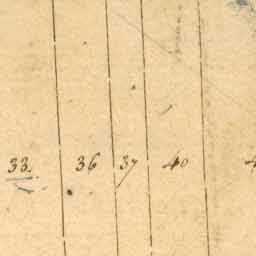 33. 36 37 40